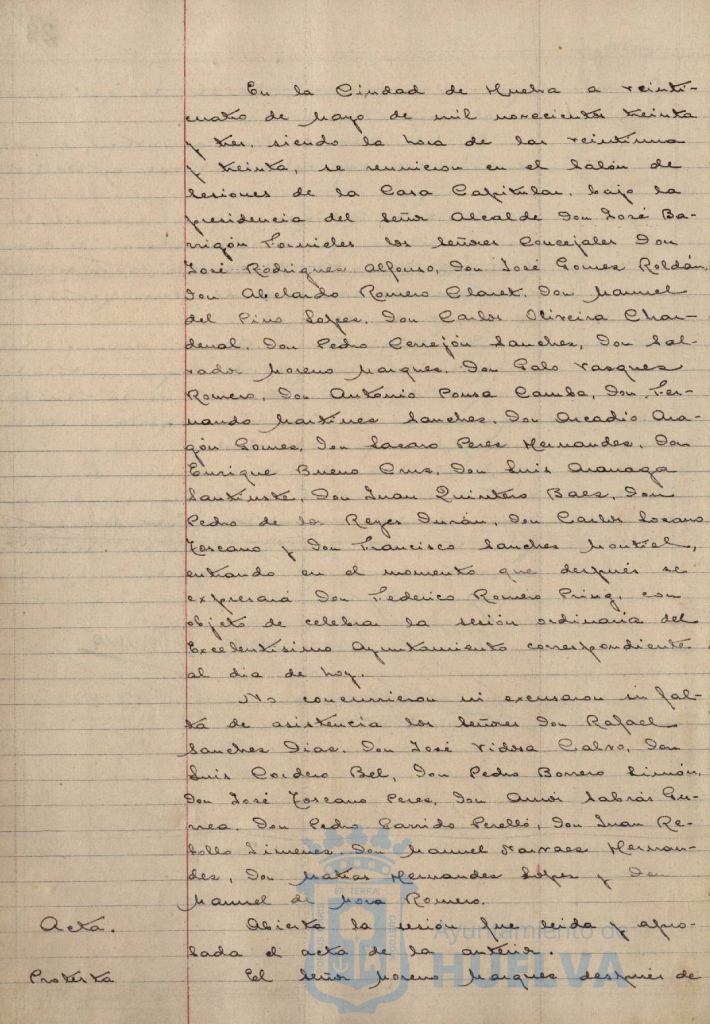 En la Ciudad de Huelva a veinti-
cuatro de Mayo de mil novecientos treinta
y tres, siendo la hora de las veintiuna
y treinta, se reunieron en el Salón de
Sesiones de la Casa Capitular, bajo la
presidencia del Señor Alcalde Don José Ba-
rrigón Fornieles los Señores Concejales Don
José Rodriguez Alfonso, Don José Gomez Roldán,
Don Abelardo Romero Claret, Don Manuel
del Pino Lopez, Don Carlos Oliveira Chan-
denal, Don Pedro Cerrejón Sanchez, Don Sal-
vador Moreno Marquez, Don Galo Vazquez
Romero, Don Antonio Ponsa Camba, Don Fer-
nando Martinez Sanchez, Don Arcadio Ara-
gón Gomez, Don Lazaro Perez Hernandez, Don
Enrique Bueno Cruz, Don Luis
Don Juan Quintero Baez, Don
Pedro de los Reyes Durán, Don Carlos Lozano
Toscano y Don Francisco Sanchez Montiel,
entrando en el momento que después se
expresará Don Federico Romero Pring, con
objeto de celebrar la sesión ordinaria del
Excelentísimo Ayuntamiento correspondiente
al dia de hoy.
No concurrieron ni excusaron su fal-
ta de asistencia los Señores Don Rafael
Sanchez Diaz, Don José Vidosa Calvo, Don
Luis Cordero Bel, Don Pedro Borrero Limón,
Don José Toscano Perez, Don Amós Sabrás Gu-
rrea, Don Pedro Garrido Perelló, Don Juan Re-
bollo Jimenez, Don Manuel Narvaez Hernan-
dez, Don Matias Hernandez Lopez y Don
Manuel de Mora Romero.
Acta. Abierta la sesión fue leida y apro-
bada el acta de la anterior.
Protesta El Señor Moreno Marquez después de
Ayuntamiento de
HUELVA